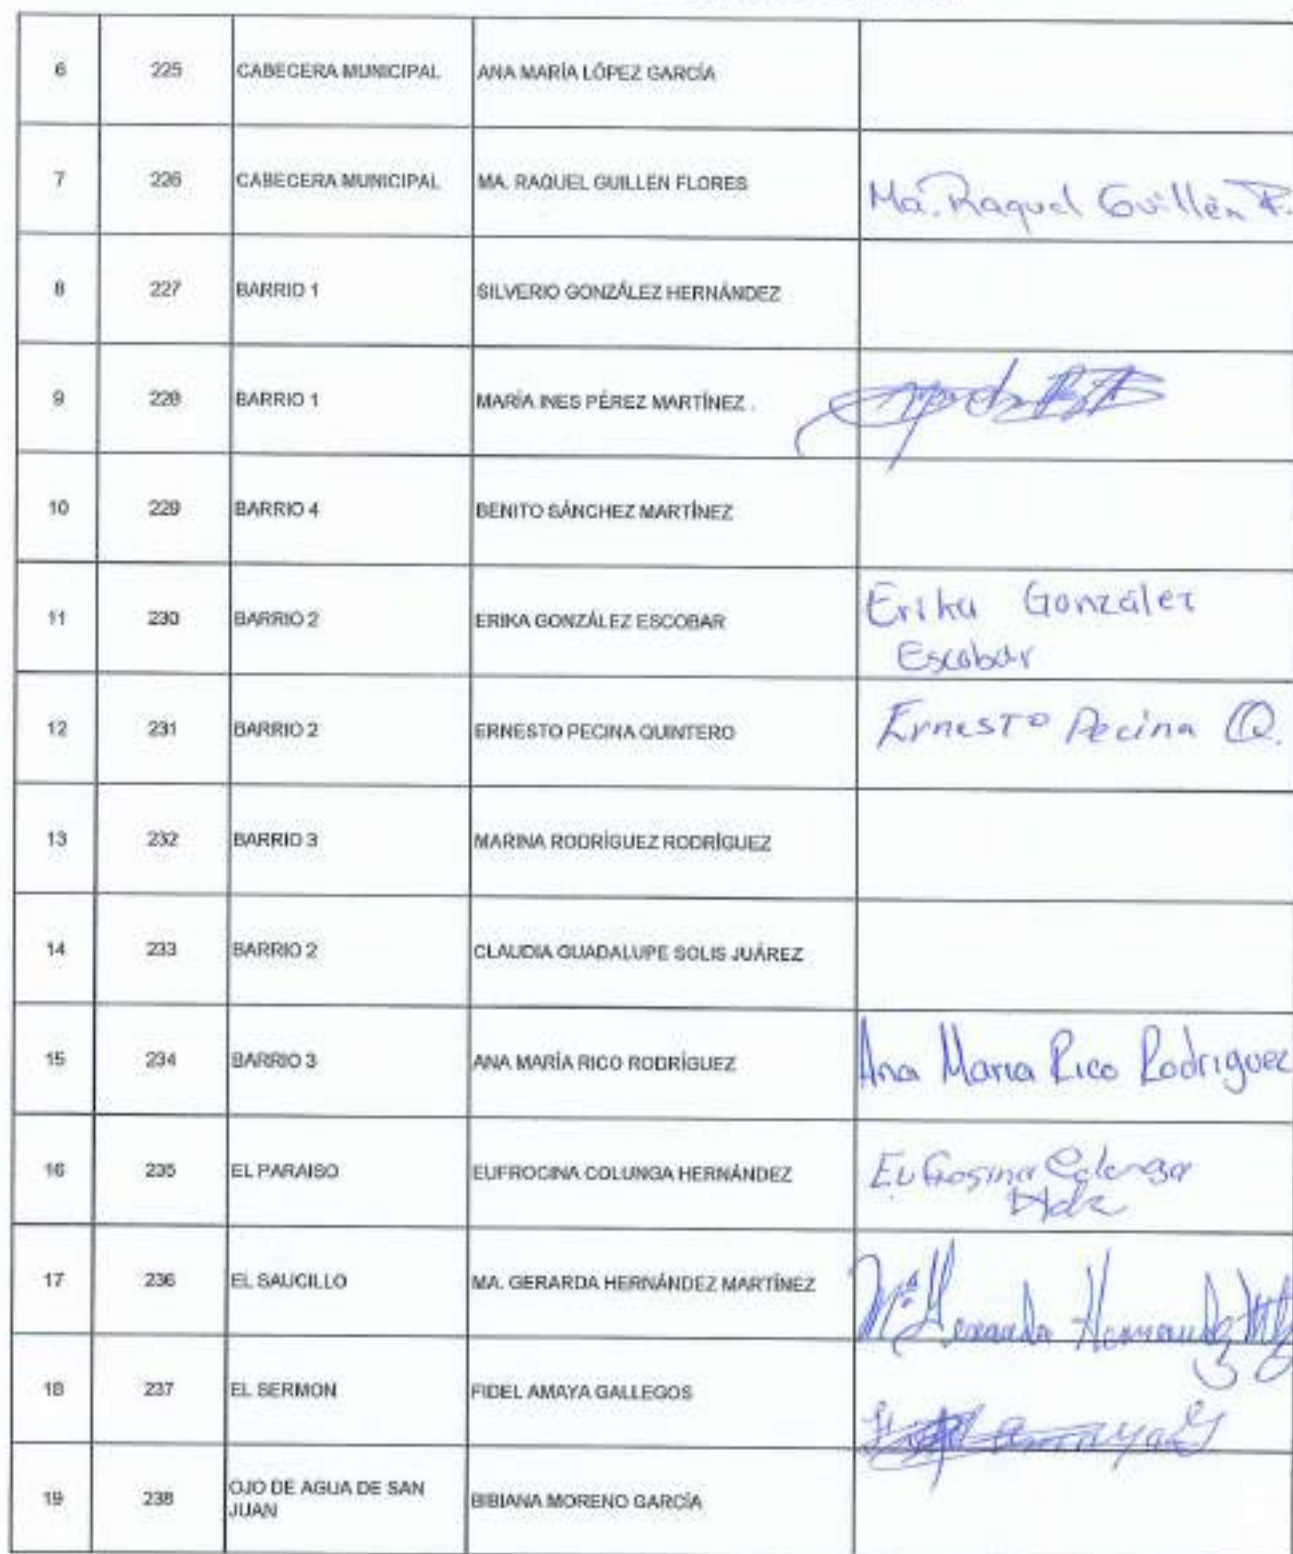 6 225 CABECERA MUNICIPAL ANA MARÍA LÓPEZ GARCÍA
7 226 CABECERA MUNICIPAL MA. RAQUEL GUILLEN FLORES Ma. Raquel Guillén F.
8 227 BARRIO 1 SILVERIO GONZÁLEZ HERNÁNDEZ
9 228 BARRIO 1 MARÍA INES PÉREZ MARTÍNEZ .
10 229 BARRIO 4 BENITO SÁNCHEZ MARTÍNEZ
11 230 BARRIO 2 ERIKA GONZÁLEZ ESCOBAR Erika González
Escobar
12 231 BARRIO 2 ERNESTO PECINA QUINTERO Ernesto Pecina Q.
13 232 BARRIO 3 MARINA RODRÍGUEZ RODRÍGUEZ
14 233 BARRIO 2 CLAUDIA GUADALUPE SOLIS JUÁREZ
15 234 BARRIO 3 ANA MARÍA RICO RODRÍGUEZ Ana Maria Rico Rodriguez
16 235 EL PARAISO EUFROCINA COLUNGA HERNÁNDEZ Eufrosina Colunga
Hdz
17 236 EL SAUCILLO MA. GERARDA HERNÁNDEZ MARTÍNEZ Mª Gerarda Hernandez Mtz
18 237 EL SERMON FIDEL AMAYA GALLEGOS
19 238 OJO DE AGUA DE SAN
JUAN BIBIANA MORENO GARCÍA